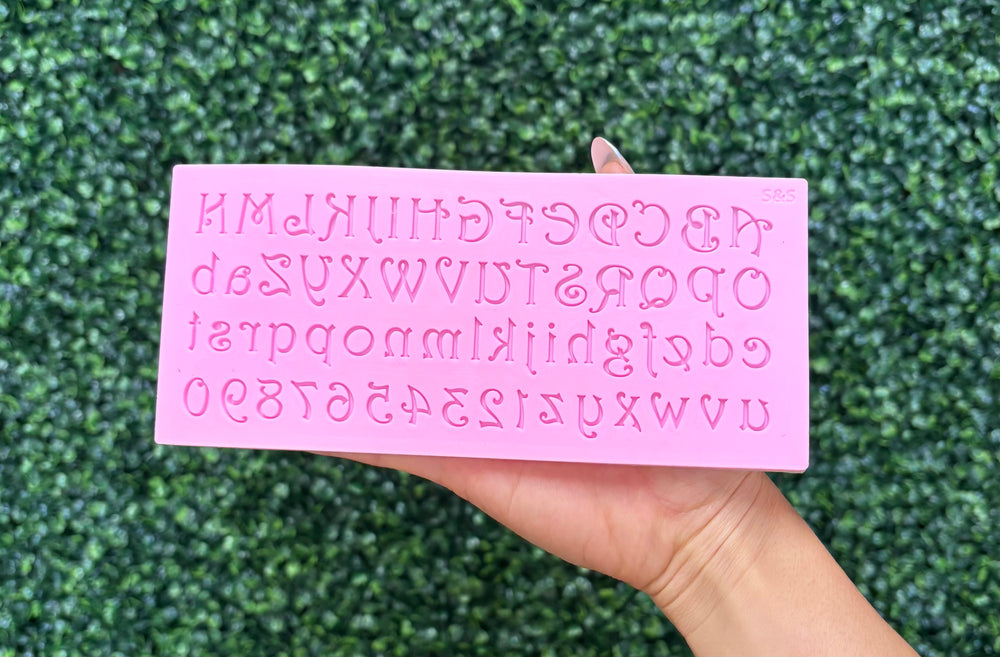 S&S
ABCDEFGHIJKLMN
OPQRSTUVWXYZab
cdefghijklmnopqrst
uvwxyz1234567890